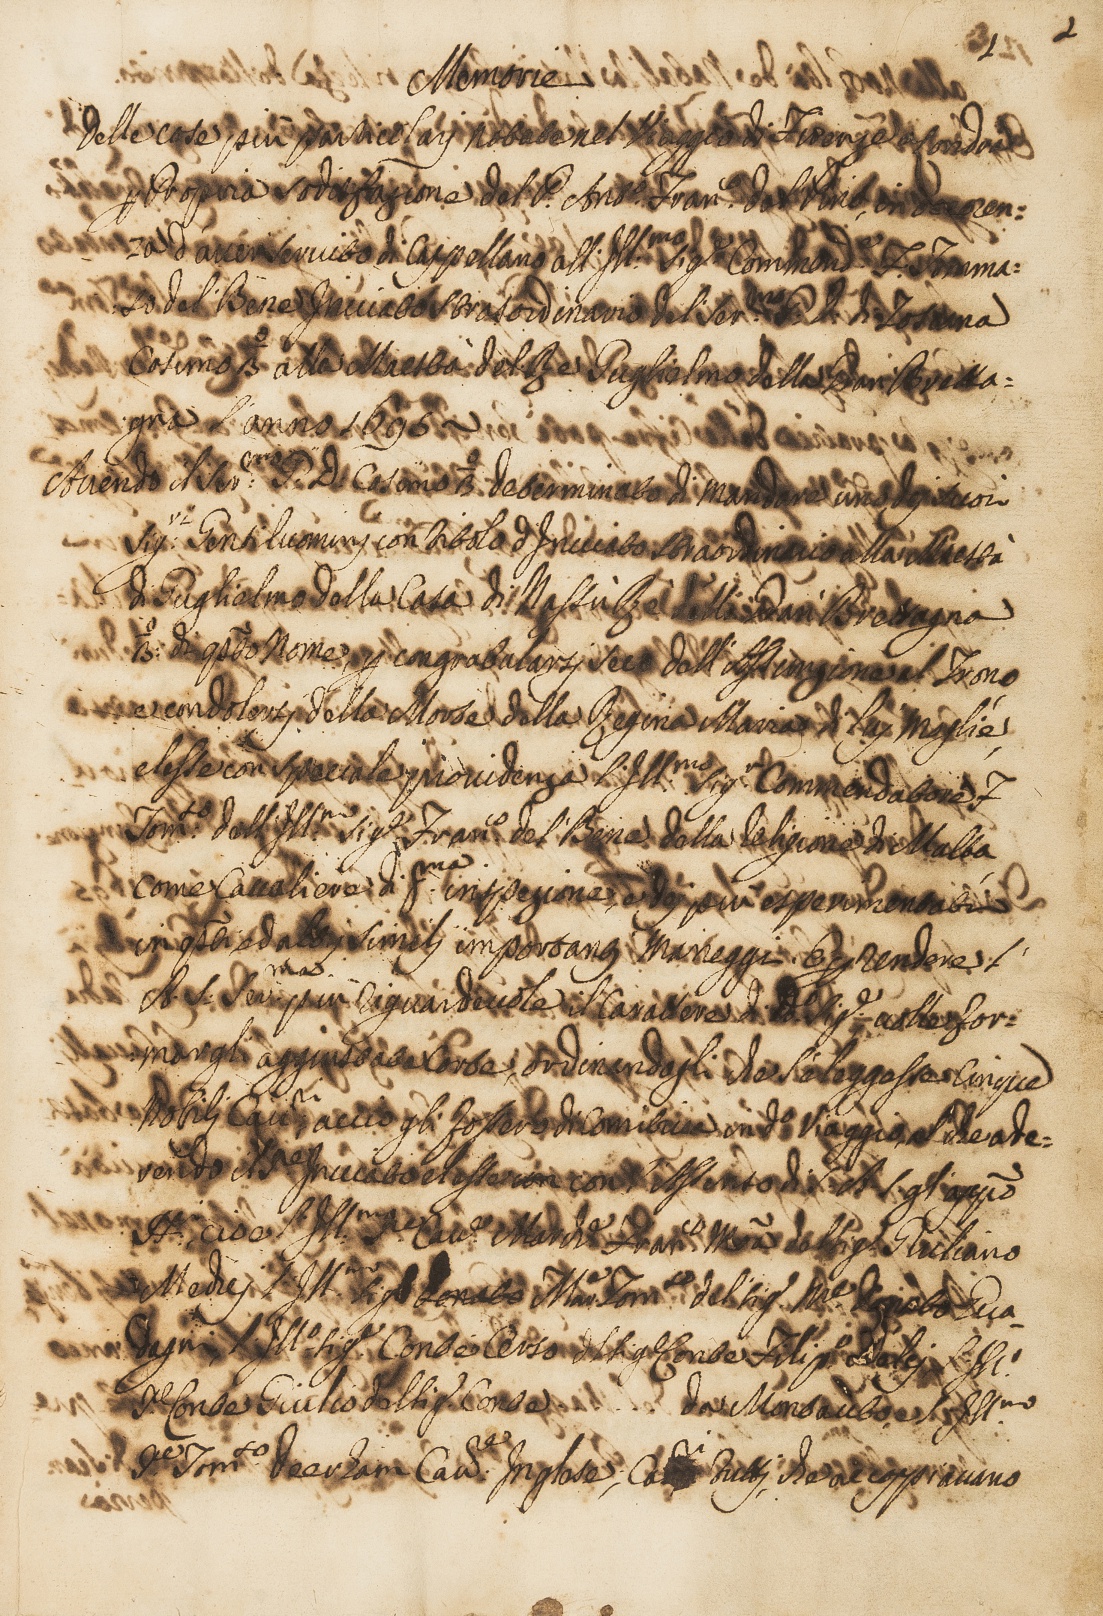 1 2
Memorie
delle cose più particolarj notate nel Viaggio di Firenze a Londra
p Propria sodisfazione del P. Ant.º Fran.º del Vino, in occoren:
za d'aver servito di Cappellano all Ill.mo Sig.r Commend.e F. Tomma:
so del Bene Inviato Straordinario del Ser.mo G. D. di Toscana
Cosimo 3º alla Maestà del Re Guglielmo della Gran Bretta:
gna l'anno 1696
Avendo il Ser.mo G. D. Cosimo 3º determinato di mandare uno dej suoi
Sig.ri Gentiluominj con titolo d'Inviato straordinario alla Maestà
di Guglielmo della Casa di Nassù Re della Gran Bretagna
3º di qsto Nome, p congratularsj seco dell'Assunzione al Trono
e condolersj della Morte della Regina Maria di luj Moglie,
elesse con speciale providenza l'Ill.mo Sig.r Commendatore F
Tom.so dell Ill.mo Sig.r Fran.º del Bene della Religione di Malta
come Cavaliere di p.ma inspezione, e dej più esperimentati
in qsti ed altrj similj importanti Maneggi. E p rendere l'
A. S. Ser.ma più riguardevole il Carattere di dº Sig.e volle for:
margli aggiustata Corte, ordinandogli che s'eleggesse Cinque
Nobilj Cav.ri, acciò gli fossero di Comitiva in dº Viaggio, Il che ade:
rendo il Inviato elesse con l'Assenso di S. A. S. gl'
cioe l'Ill.mo Cav.e March.e Fran.co M.a del Sig.r Giuliano
Medicj l'Ill.mo Sig.r Donato Mar. Tom.so del Sig.r M.e Donato Gua_
dagni, l'Ill.º Sig.r Conte Orso del Sig.e Conte Filip.º d'Elcj l'Ill.
S.r Conte Giulio del Sig.r Conte da Montauto e l'Ill.mo
S.re Tom.so Deerham Cav.re Inglese, Cav.ri tuttj, che accoppiavano